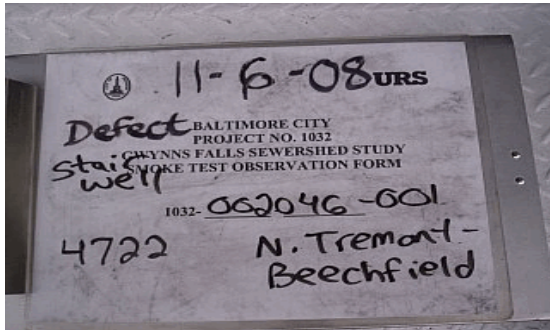 11-6-08 URS
Defect BALTIMORE CITY
PROJECT NO. 1032
GWYNNS FALLS SEWERSHED STUDY
Stair well
SMOKE TEST OBSERVATION FORM
1032- 002046-001
4722 N. Tremont-
Beechfield